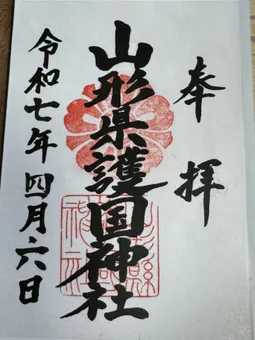 奉拝
山形県護国神社
令和七年四月六日